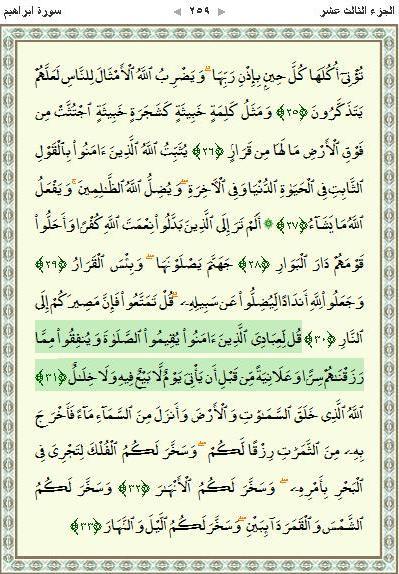 الجزء الثالث عشر ٢٥٩ سورة ابراهيم
تُؤْتِىٓ أُكُلَهَا كُلَّ حِينٍۭ بِإِذْنِ رَبِّهَا ۗ وَيَضْرِبُ ٱللَّهُ ٱلْأَمْثَالَ لِلنَّاسِ لَعَلَّهُمْ
يَتَذَكَّرُونَ ﴿٢٥﴾ وَمَثَلُ كَلِمَةٍ خَبِيثَةٍ كَشَجَرَةٍ خَبِيثَةٍ ٱجْتُثَّتْ مِن
فَوْقِ ٱلْأَرْضِ مَا لَهَا مِن قَرَارٍ ﴿٢٦﴾ يُثَبِّتُ ٱللَّهُ ٱلَّذِينَ ءَامَنُوا۟ بِٱلْقَوْلِ
ٱلثَّابِتِ فِى ٱلْحَيَوٰةِ ٱلدُّنْيَا وَفِى ٱلْءَاخِرَةِ ۖ وَيُضِلُّ ٱللَّهُ ٱلظَّٰلِمِينَ ۚ وَيَفْعَلُ
ٱللَّهُ مَا يَشَآءُ ﴿٢٧﴾ ۞ أَلَمْ تَرَ إِلَى ٱلَّذِينَ بَدَّلُوا۟ نِعْمَتَ ٱللَّهِ كُفْرًا وَأَحَلُّوا۟
قَوْمَهُمْ دَارَ ٱلْبَوَارِ ﴿٢٨﴾ جَهَنَّمَ يَصْلَوْنَهَا ۖ وَبِئْسَ ٱلْقَرَارُ ﴿٢٩﴾
وَجَعَلُوا۟ لِلَّهِ أَندَادًا لِّيُضِلُّوا۟ عَن سَبِيلِهِۦ ۗ قُلْ تَمَتَّعُوا۟ فَإِنَّ مَصِيرَكُمْ إِلَى
ٱلنَّارِ ﴿٣٠﴾ قُل لِّعِبَادِىَ ٱلَّذِينَ ءَامَنُوا۟ يُقِيمُوا۟ ٱلصَّلَوٰةَ وَيُنفِقُوا۟ مِمَّا
رَزَقْنَٰهُمْ سِرًّا وَعَلَانِيَةً مِّن قَبْلِ أَن يَأْتِىَ يَوْمٌ لَّا بَيْعٌ فِيهِ وَلَا خِلَٰلٌ ﴿٣١﴾
ٱللَّهُ ٱلَّذِى خَلَقَ ٱلسَّمَٰوَٰتِ وَٱلْأَرْضَ وَأَنزَلَ مِنَ ٱلسَّمَآءِ مَآءً فَأَخْرَجَ
بِهِۦ مِنَ ٱلثَّمَرَٰتِ رِزْقًا لَّكُمْ ۖ وَسَخَّرَ لَكُمُ ٱلْفُلْكَ لِتَجْرِىَ فِى
ٱلْبَحْرِ بِأَمْرِهِۦ ۖ وَسَخَّرَ لَكُمُ ٱلْأَنْهَٰرَ ﴿٣٢﴾ وَسَخَّرَ لَكُمُ
ٱلشَّمْسَ وَٱلْقَمَرَ دَآئِبَيْنِ ۖ وَسَخَّرَ لَكُمُ ٱلَّيْلَ وَٱلنَّهَارَ ﴿٣٣﴾